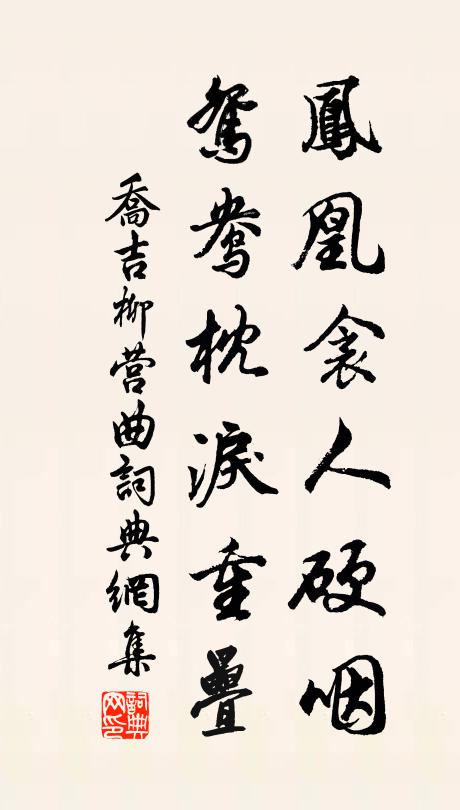 鳳凰衾人硬咽
鴛鴦枕淚重疊
喬吉柳營曲詞典網集
詞典网印